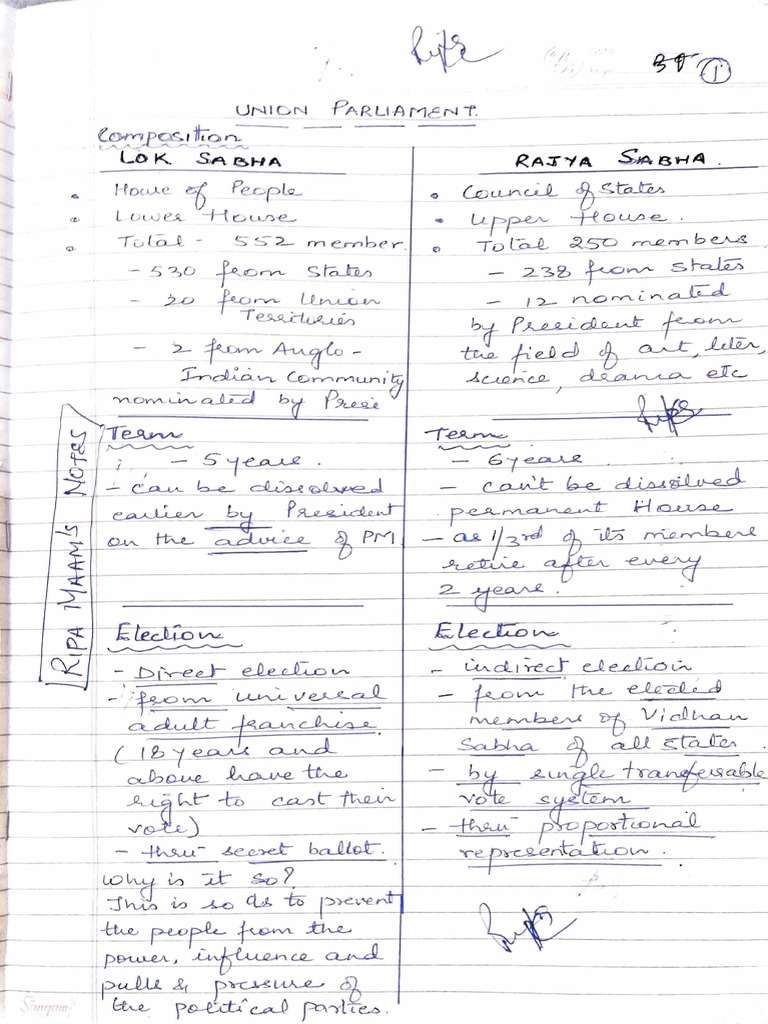 1
UNION PARLIAMENT.
Composition
LOK SABHA
• House of People
• Lower House
• Total - 552 member.
- 530 from States
- 20 from Union
Territories
- 2 from Anglo-
Indian Community
nominated by Presi
Term
- 5 years.
- can be dissolved
earlier by President
on the advice of PM
Election
- Direct election
- from universal
adult franchise.
(18 years and
above have the
right to cast their
vote)
- thru secret ballot.
why is it so?
This is so as to prevent
the people from the
power, influence and
pulls & pressure of
the political parties.
RAJYA SABHA.
• Council of States
• Upper House.
• Total 250 members
- 238 from States
- 12 nominated
by President from
the field of art, liter,
science, drama etc
Term
- 6 years.
- can't be dissolved
permanent House
- as 1/3rd of its members
retire after every
2 years.
Election
- indirect election
- from the elected
members of Vidhan
Sabha of all states
- by single transferable
vote system
- thru proportional
representation.
RIPA MAAM'S NOTES
Sangam